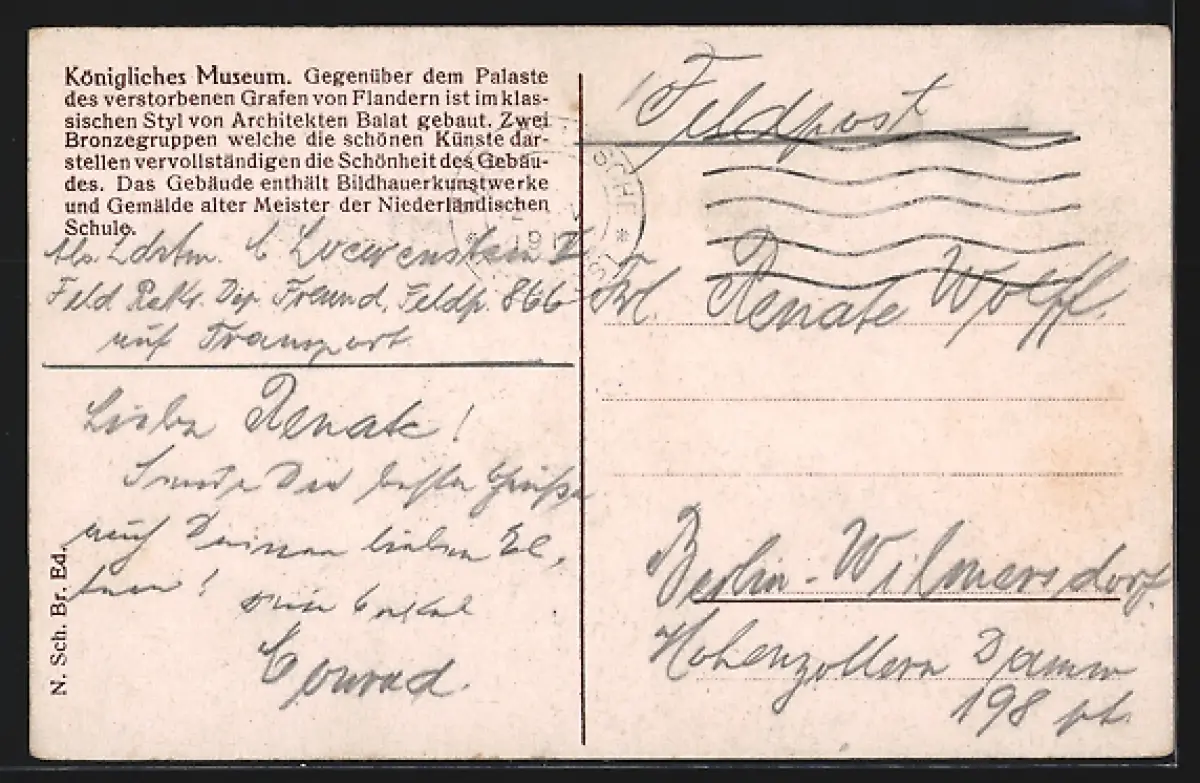 Königliches Museum. Gegenüber dem Palaste
des verstorbenen Grafen von Flandern ist im klas-
sischen Styl von Architekten Balat gebaut. Zwei
Bronzegruppen welche die schönen Künste dar-
stellen vervollständigen die Schönheit des Gebäu-
des. Das Gebäude enthält Bildhauerkunstwerke
und Gemälde alter Meister der Niederländischen
Schule.
Abs. Ldstm. C Loewenstein II
Feld Rekr. Dep. Feldp. 866
auf Transport
Liebe Renate!
Sende Dir beste Grüße
auch Deinen lieben El,
tern!
Dein Onkel
Conrad.
N. Sch. Br. Ed.
Feldpost
Frl. Renate Wolff.
Berlin-Wilmersdorf.
Hohenzollern Damm
198 pt.